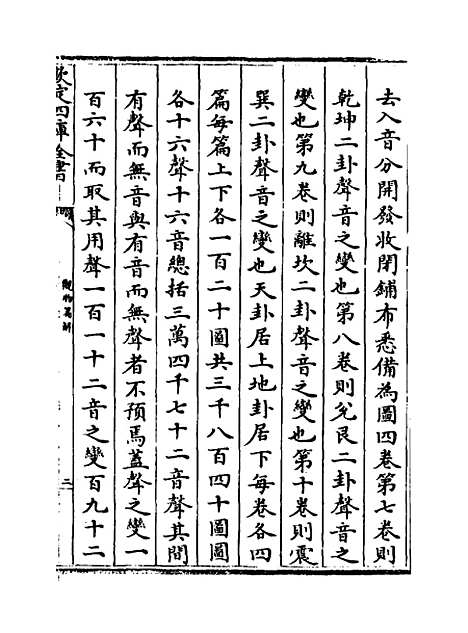 去入音分開發收閉鋪布悉備為圖四卷第七卷則
乾坤二卦聲音之變也第八卷則兌艮二卦聲音之
變也第九卷則離坎二卦聲音之變也第十卷則震
巽二卦聲音之變也天卦居上地卦居下每卷各四
篇每篇上下各一百二十圖共三千八百四十圖圖
各十六聲十六音總括三萬四千七十二音聲其間
有聲而無音與有音而無聲者不預焉蓋聲之變一
百六十而取其用聲一百一十二音之變百九十二
欽定四庫全書
觀物篇解
三